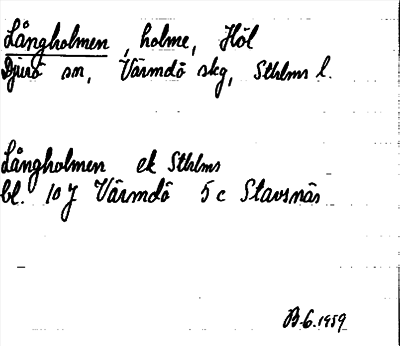 Långholmen, holme, Höl
Djurö sn, Värmdö skg, Sthlms l.
Långholmen ek Sthlms
bl. 10 J Värmdö 5 c Stavsnäs
B.6.1959